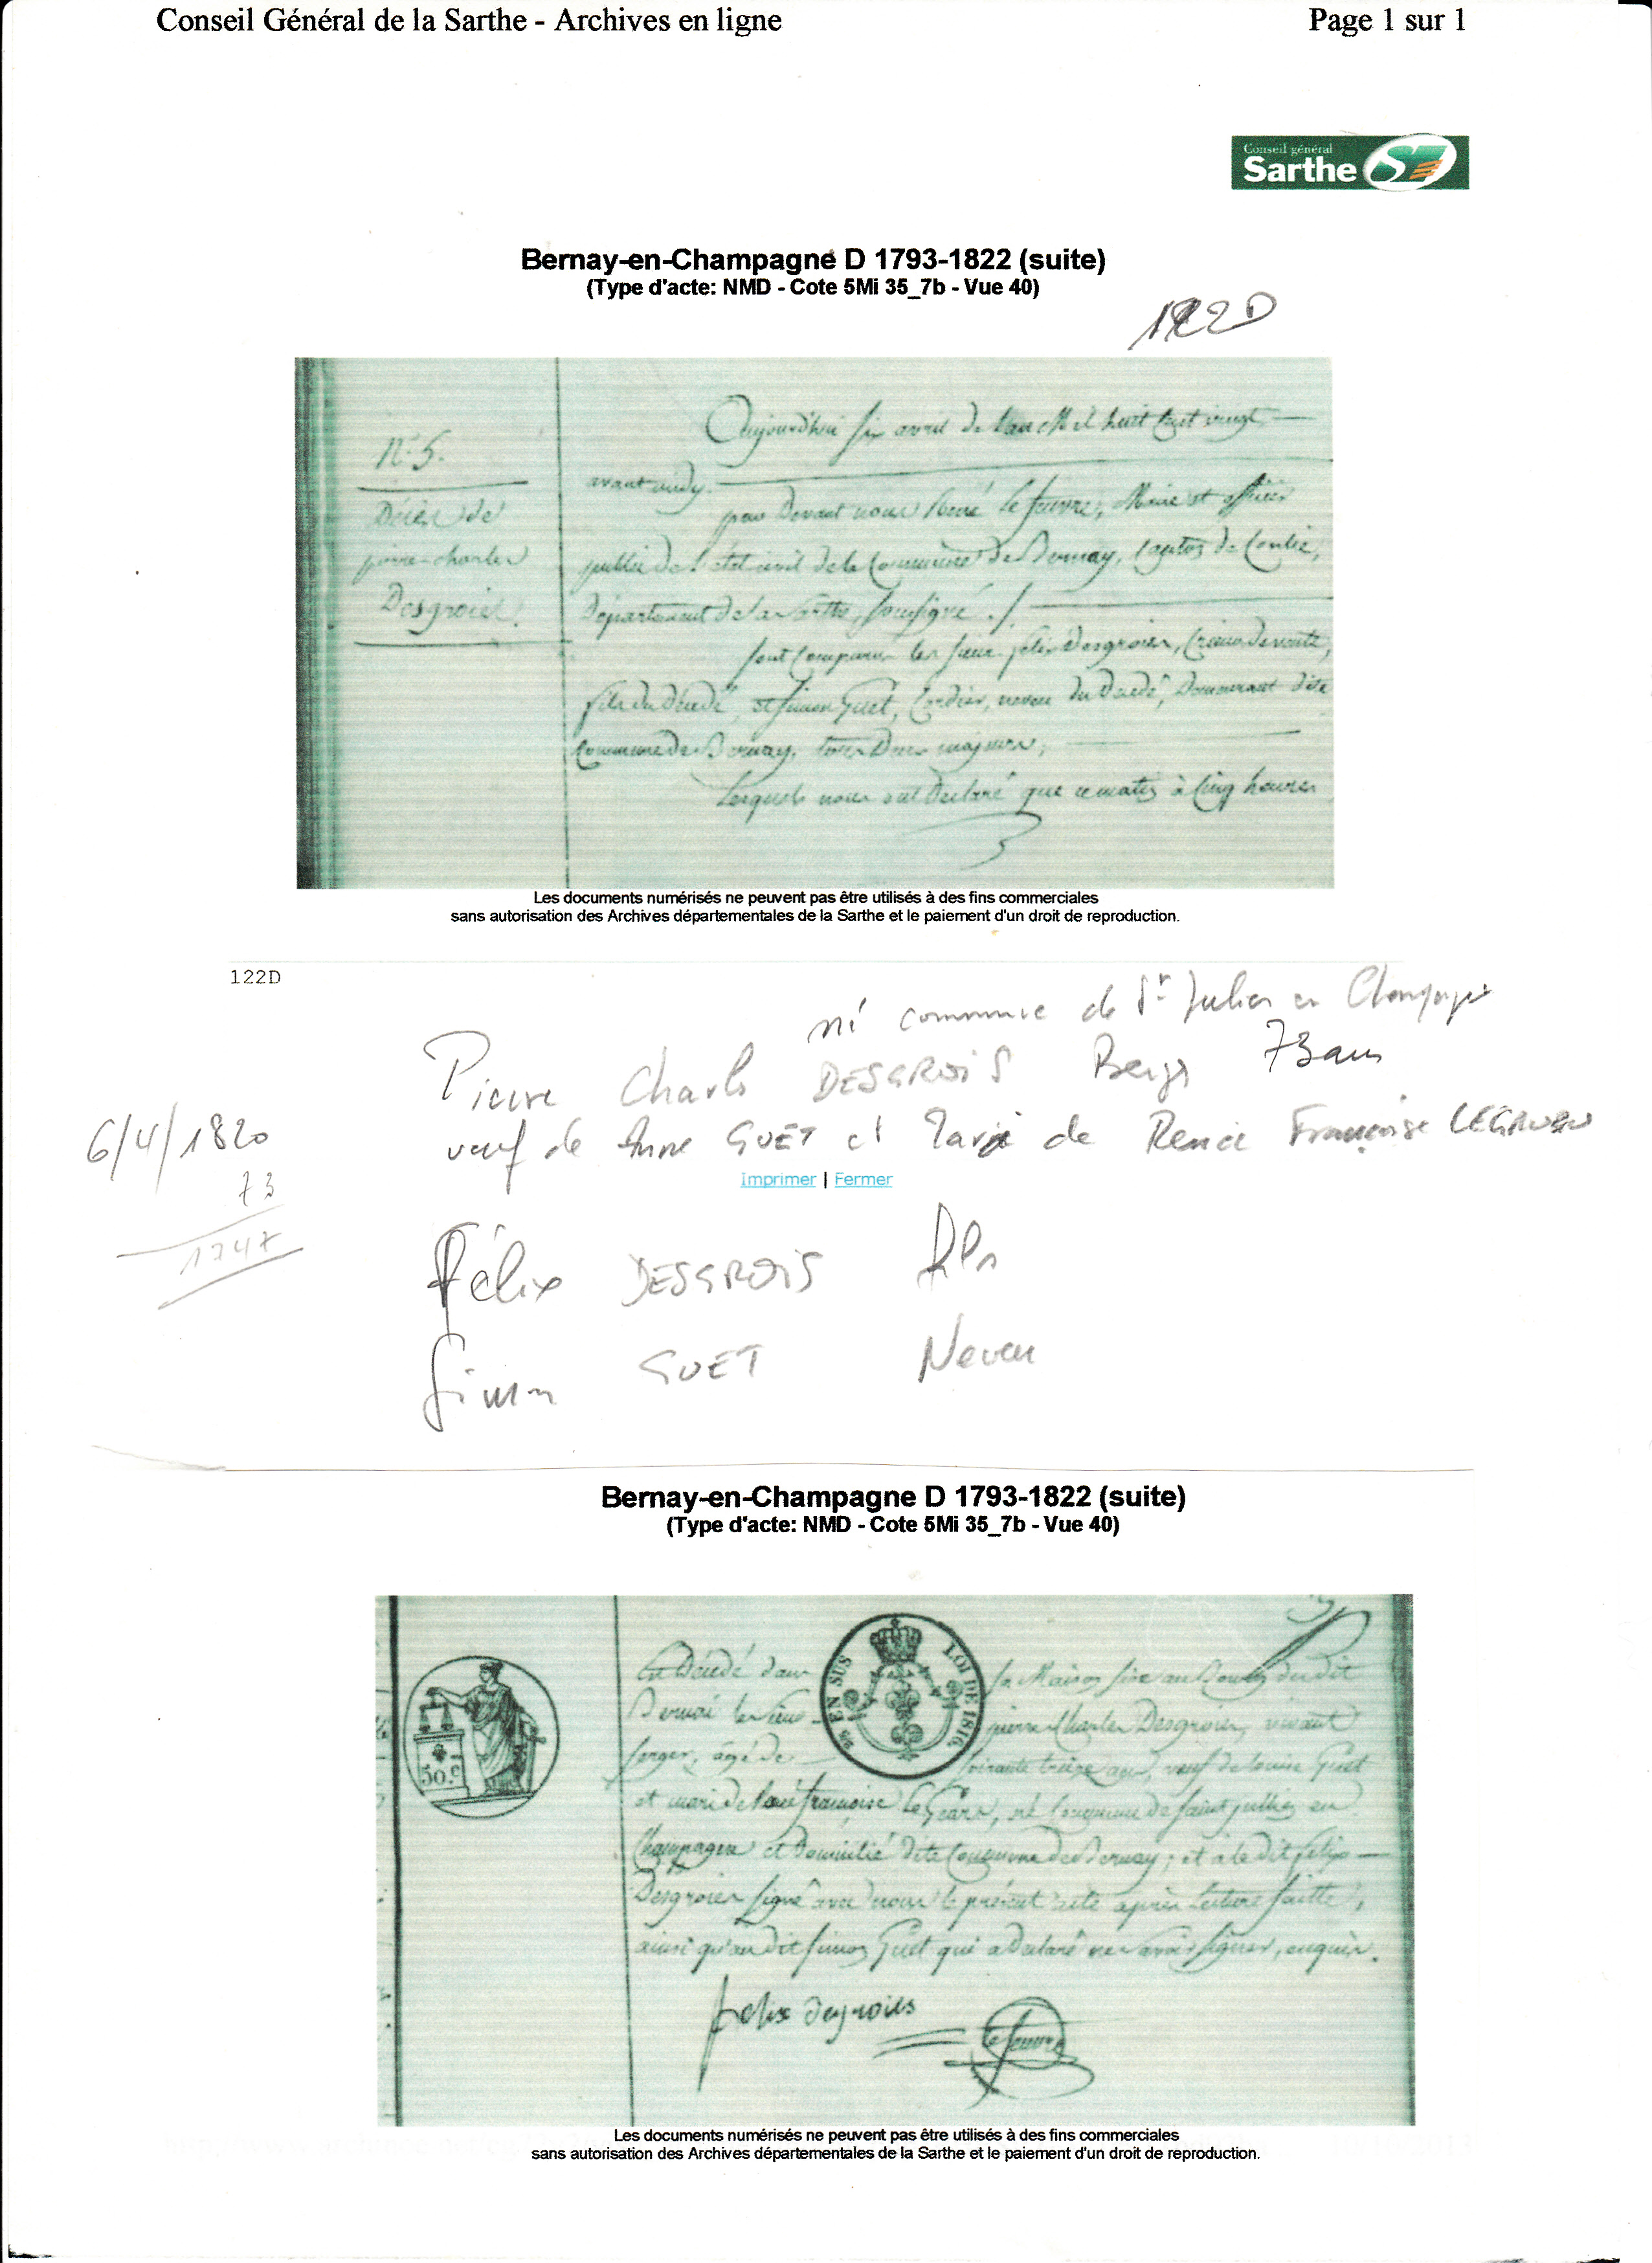 Conseil Général de la Sarthe - Archives en ligne
Page 1 sur 1
Conseil général
Sarthe
Bernay-en-Champagne D 1793-1822 (suite)
(Type d'acte: NMD - Cote 5Mi 35_7b - Vue 40)
122D
N.º 5.
Décès de
pierre-charles
Desgroies.
Aujourd'hui six avril de l'an Mil huit cent vingt
avant midy.
par Devant nous René le feuvre, Maire et officier
public de l'état civil de la Commune de Bernay, Canton de Conlie,
Département de la Sarthe, soussigné ./.
sont Comparus les sieurs felix Desgroies,
fils du Décédé, et Simon Guet, Cordier, neveu du Décédé, Demeurant d'ite
Commune de Bernay, tous Deux majeurs;
Lesquels nous ont Déclaré que ce matin à Cinq heures
Les documents numérisés ne peuvent pas être utilisés à des fins commerciales
sans autorisation des Archives départementales de la Sarthe et le paiement d'un droit de reproduction.
122D
né commune de St Julien en Champagne
Pierre Charles DESGROIS 73 ans
6/4/1820
veuf de Anne GUET et Marié de Renée Françoise
73
Imprimer | Fermer
1747
Félix DESGROIS fils
Simon GUET Neveu
Bernay-en-Champagne D 1793-1822 (suite)
(Type d'acte: NMD - Cote 5Mi 35_7b - Vue 40)
50.c
EN SUS
LOI DE 1816.
Est Décédé dans sa Maison sise au Bourg du dit
Bernai le sieur pierre Charles Desgroies, vivant
âgé de soixante treize ans, veuf de louise Guet
et mari de Renée françoise né Commune de saint jullien en
Champagne et Domicilié d'ite Commune de Bernay; et a le dit felix
Desgroies signé avec nous le présent acte après lecture faitte,
ainsi qu'au dit simon Guet qui a Déclaré ne savoir signer, enquis.
felix desgroies
le feuvre
Les documents numérisés ne peuvent pas être utilisés à des fins commerciales
sans autorisation des Archives départementales de la Sarthe et le paiement d'un droit de reproduction.